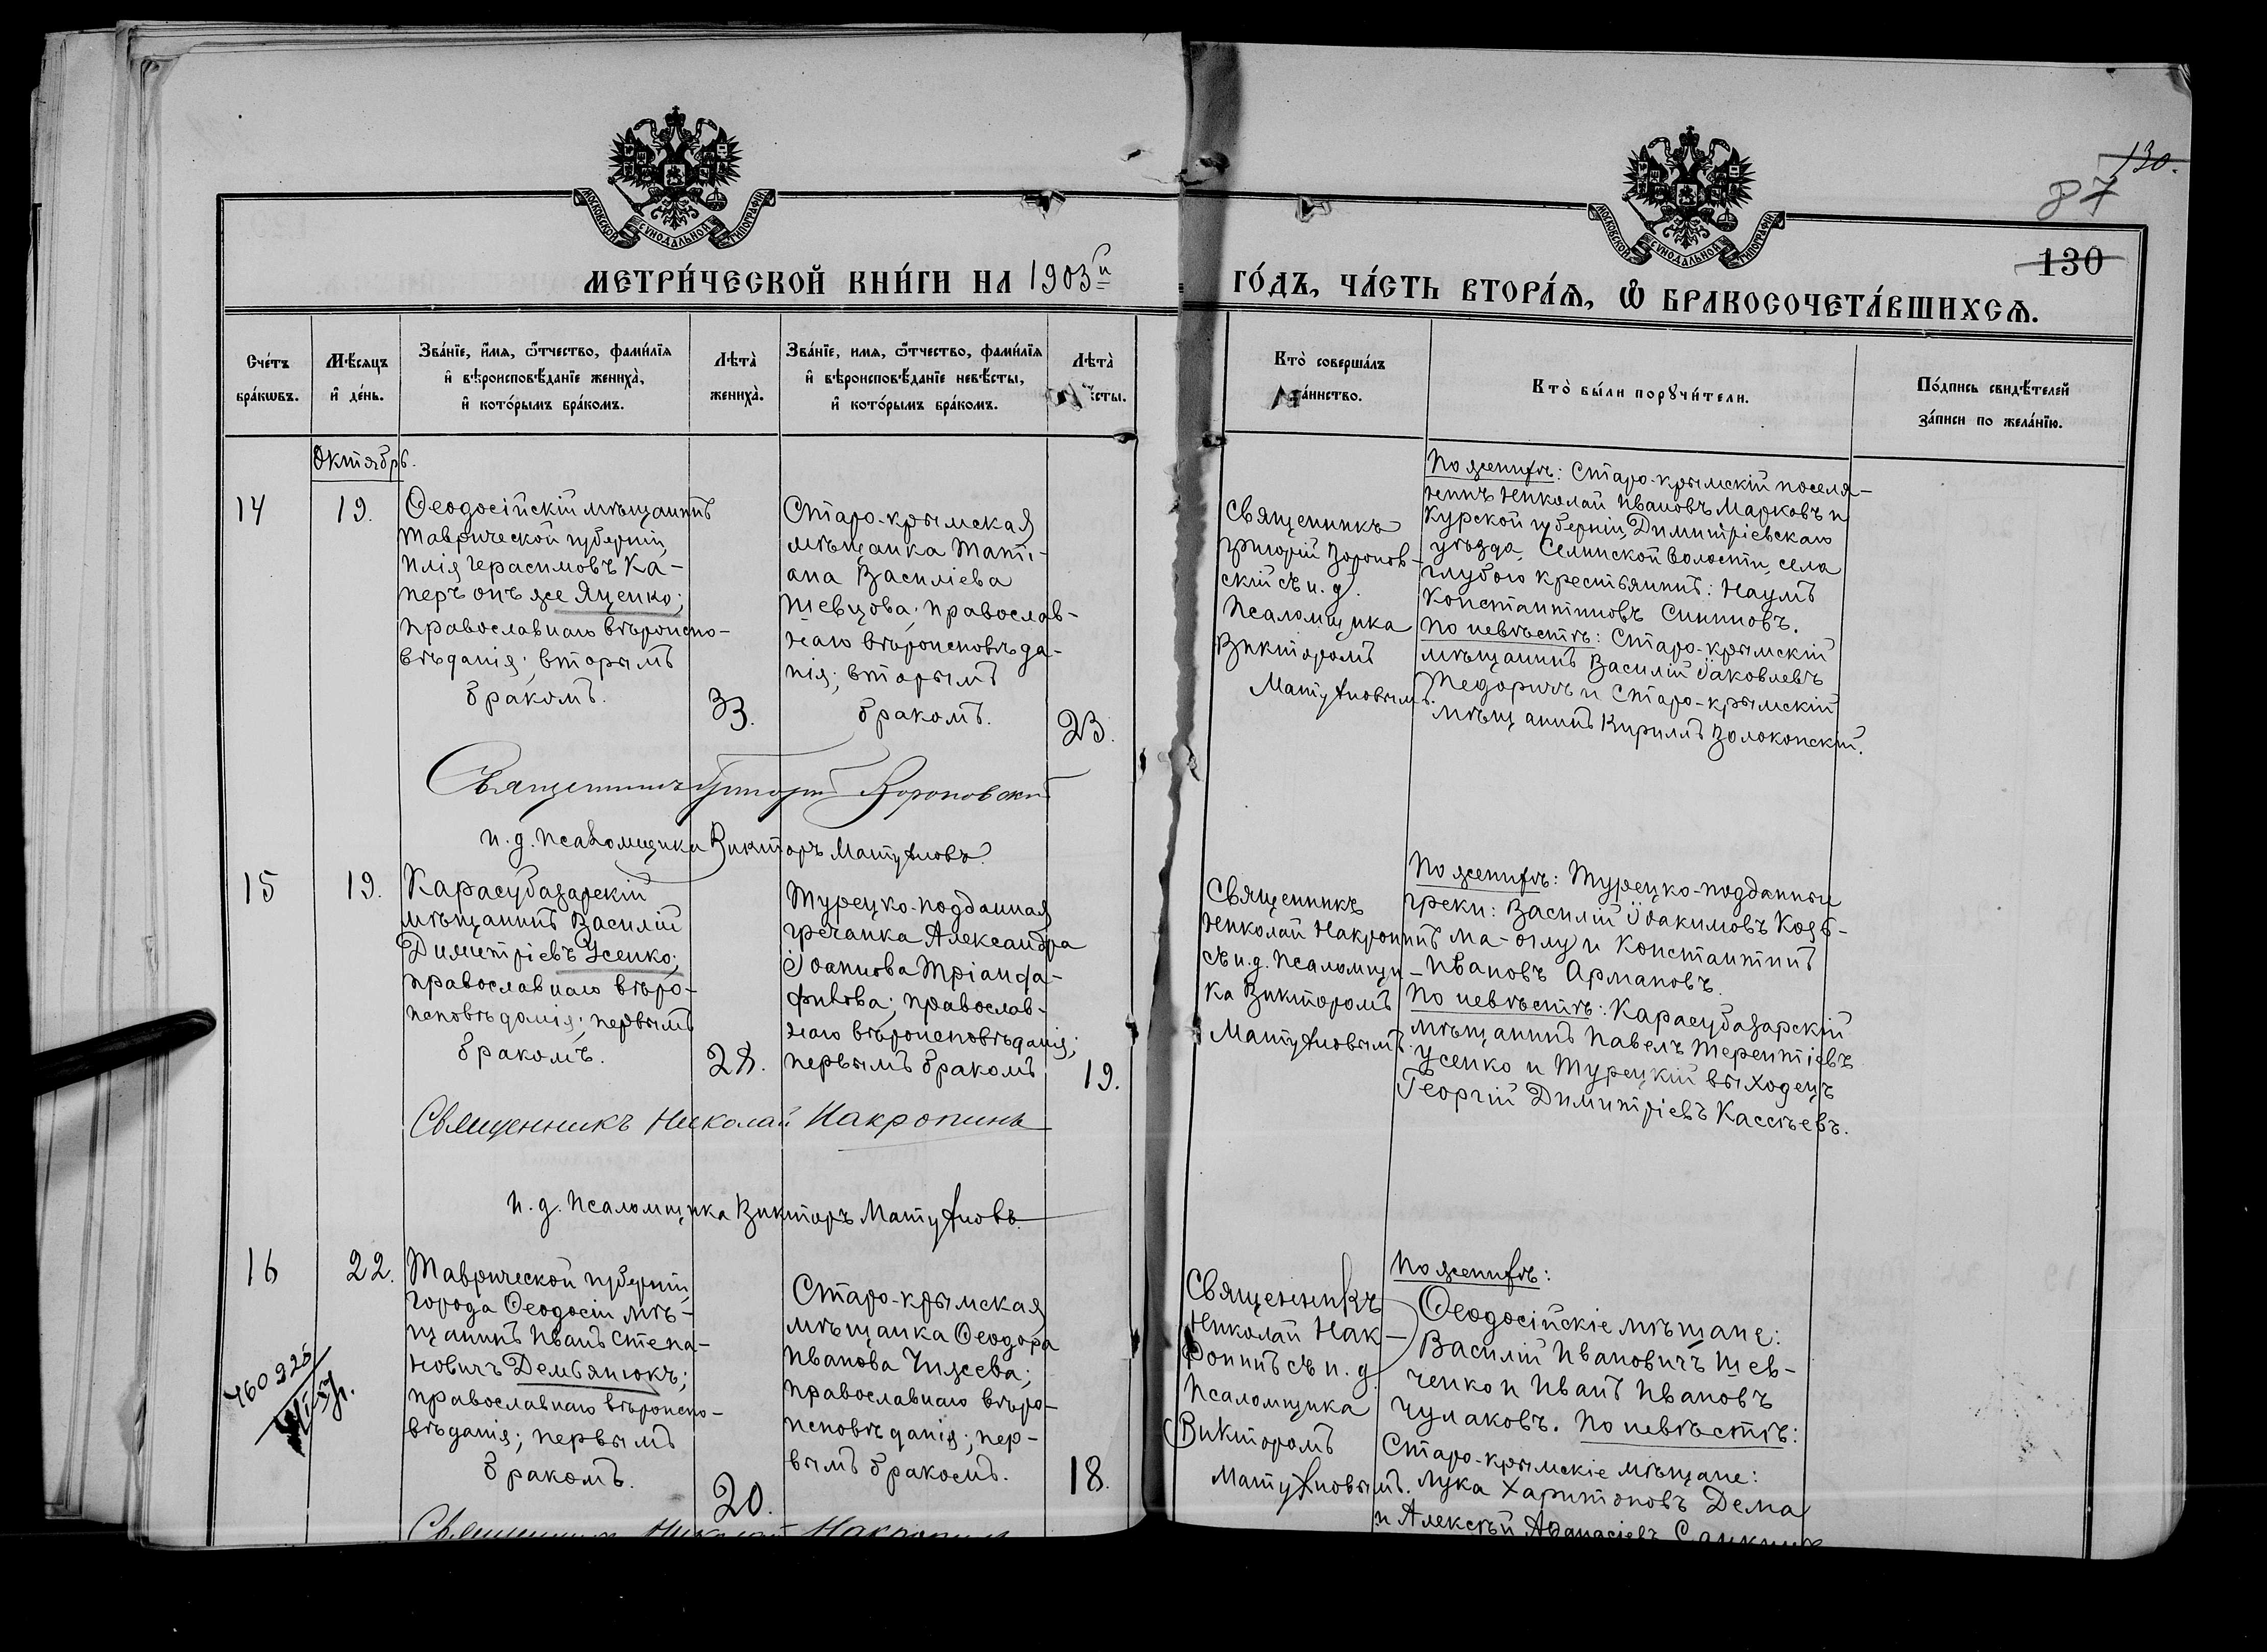 130.
87
130
МОСКОВСКОЙ СѴНОДАЛЬНОЙ ТИПОГРАФІИ
МОСКОВСКОЙ СѴНОДАЛЬНОЙ ТИПОГРАФІИ
МЕТРИ́ЧЕСКОЙ КНИ́ГИ НА 1903й ГО́ДЪ, ЧА́СТЬ ВТОРА́Ѧ, Ѽ БРАКОСОЧЕТА́ВШИХСѦ.
Сче́тъ
бра́кѡвъ.
Мѣ́сяцъ
и҆ де́нь.
Зва́нїе, и҆́мѧ, ѻ҆́тчество, фами́лїѧ
и҆ вѣроисповѣ́данїе жениха̀,
и҆ кото́рымъ бра́комъ.
Лѣта̀
жениха̀.
Зва́нїе, и҆мѧ, ѻ҆́тчество, фами́лїѧ
и҆ вѣроисповѣ́данїе невѣ́сты,
и҆ кото́рымъ бра́комъ.
Лѣта̀
ѣсты.
Кто̀ соверша́лъ
та́инство.
Кто̀ бы́ли порꙋчи́тели.
По́дпись свидѣ́телей
за́писи по жела́нїю.
Октябрь.
14
19.
Ѳеодосійскій мѣщанинъ
Таврической губерніи
Илія Герасимовъ Ка-
перъ онъ же Яценко;
православнаго вѣроиспо-
вѣданія; вторымъ
бракомъ.
33.
Старо-крымская
мѣщанка Тати-
ана Василіева
Шевцова; православ-
наго вѣроисповѣда-
нія; вторымъ
бракомъ.
23.
Священникъ
Григорій Воронов-
скій съ и. д.
Псаломщика
Викторомъ
Матушновымъ.
По женихѣ: Старо-крымскій поселя-
нинъ Николай Ивановъ Марковъ и
Курской губерніи, Димитріевскаго
уѣзда, Селинской волости, села
Глубого крестьянинъ: Наумъ
Константиновъ Синиковъ.
По невѣстѣ: Старо-крымскій
мѣщанинъ Василій Іаковлевъ
Педоричъ и Старо-крымскій
мѣщанинъ Кириллъ Волоконскій.
Священникъ Григорій Вороновскій
И. д. Псаломщика Викторъ Матушновъ.
15
19.
Карасубазарскій
мѣщанинъ Василій
Димитріевъ Усенко;
православнаго вѣро-
исповѣданія; первымъ
бракомъ.
28.
Турецко-подданная
гречанка Александра
Іоаннова Тріанда-
филова; православ-
наго вѣроисповѣданія;
первымъ бракомъ
19.
Священникъ
Николай Накропинъ
съ и. д. Псаломщи-
ка Викторомъ
Матушновымъ.
По женихѣ: Турецко-подданные
греки: Василій Іоакимовъ Козь-
ма-оглу и Константинъ
Ивановъ Армановъ.
По невѣстѣ: Карасубазарскій
мѣщанинъ Павелъ Терентіевъ
Усенко и Турецкій выходецъ
Георгій Димитріевъ Кассѣевъ.
Священникъ Николай Накропинъ
И. д. Псаломщика Викторъ Матушновъ.
16
22.
Таврической губерніи,
города Ѳеодосіи мѣ-
щанинъ Иванъ Степа-
новичъ Демьянюкъ;
православнаго вѣроиспо-
вѣданія; первымъ
бракомъ.
20.
Старо-крымская
мѣщанка Ѳеодора
Иванова Чижева;
православнаго вѣро-
исповѣданія; пер-
вымъ бракомъ.
18.
Священникъ
Николай Нак-
ропинъ съ и. д.
Псаломщика
Викторомъ
Матушновымъ.
По женихѣ:
Ѳеодосійскіе мѣщане:
Василій Ивановичъ Шев-
ченко и Иванъ Ивановъ
Чулаковъ. По невѣстѣ:
Старо-крымскіе мѣщане:
Лука Харитоновъ Дема
и Алексѣй Аѳанасіевъ
Священникъ Николай Накропинъ